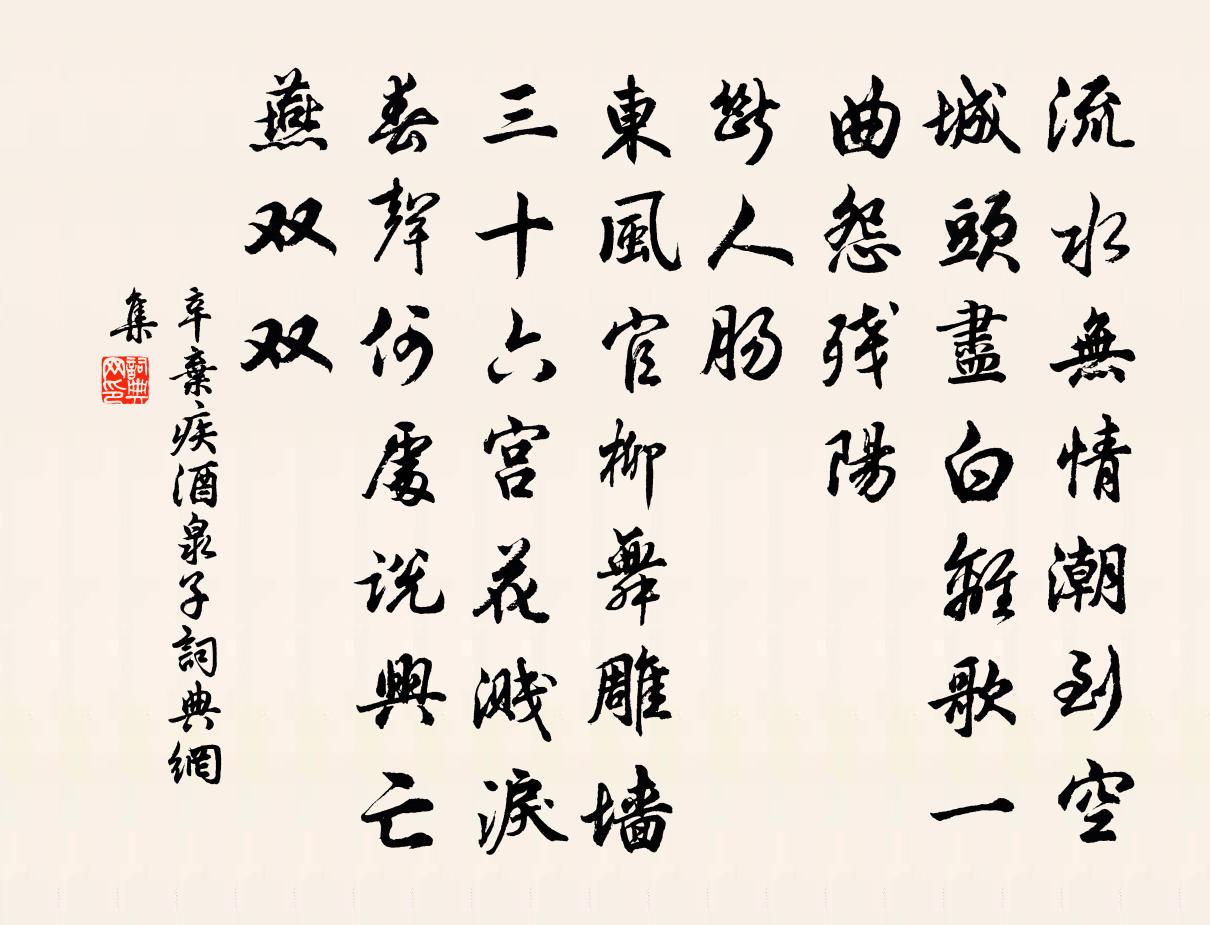 流水無情潮到空
城頭盡白離歌一
曲怨残陽
斷人肠
東風官柳舞雕墙
三十六宫花溅淚
春聲何處説興亡
燕双双
辛棄疾酒泉子詞典網
集
詞典網印